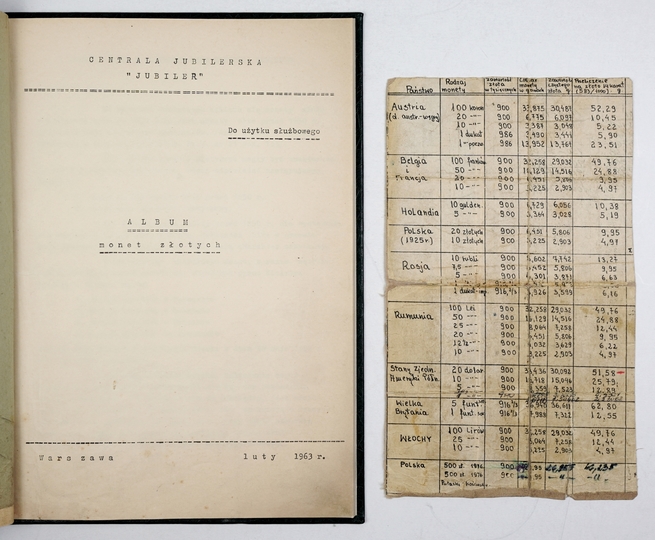 CENTRALA JUBILERSKA
"JUBILER"
Do użytku służbowego
ALBUM
monet złotych
Warszawa luty 1963 r.
Państwo Rodzaj monety zawartość złota w tysięcznych
Austria 100 koron 900 33,875 30,487 52,29
(d. austr.-węgry) 20 -"- 900 6,775 6,097 10,45
10 -"- 900 3,387 3,048 5,22
1 dukat 986 3,490 3,441 5,90
986 13,952 13,764 23,51
Belgia 100 franków 900 32,258 29,032 49,76
i 50 --- 900 16,129 14,516 24,88
Francja 20 --- 900 6,451 5,806 9,95
10 --- 900 3,225 2,903 4,97
10 gulden. 900 6,729 6,056 10,38
Holandia 5 --- 900 3,364 3,028 5,19
Polska 20 złotych 900 6,451 5,806 9,95
(1925r.) 10 złotych 900 3,225 2,903 4,97
10 rubli 900 8,602 7,742 13,27
Rosja 7,5 --- 900 6,452 5,806 9,95
5 --- 900 4,301 3,871 6,63
916,⅔ 3,926 3,599 6,16
100 Lei 900 32,258 29,032 49,76
Rumunia 50 --- 900 16,129 14,516 24,88
25 --- 900 8,064 7,258 12,44
20 --- 900 6,451 5,806 9,95
12½ --- 900 4,032 3,629 6,22
10 --- 900 3,225 2,903 4,97
Stany Zjedn. 20 dolar 900 33,436 30,092 51,58
Ameryki Półn. 10 --- 900 16,718 15,046 25,79
5 --- 900 8,359 7,523 12,89
Wielka 5 funt 916⅔ 36,611 62,80
Brytania 1 funt 916⅔ 7,988 7,322 12,55
100 Lirów 900 32,258 29,032 49,76
WŁOCHY 25 --- 900 8,064 7,258 12,44
10 --- 900 3,225 2,903 4,97
Polska 500 zł. 1976 900
500 zł. 1976 900